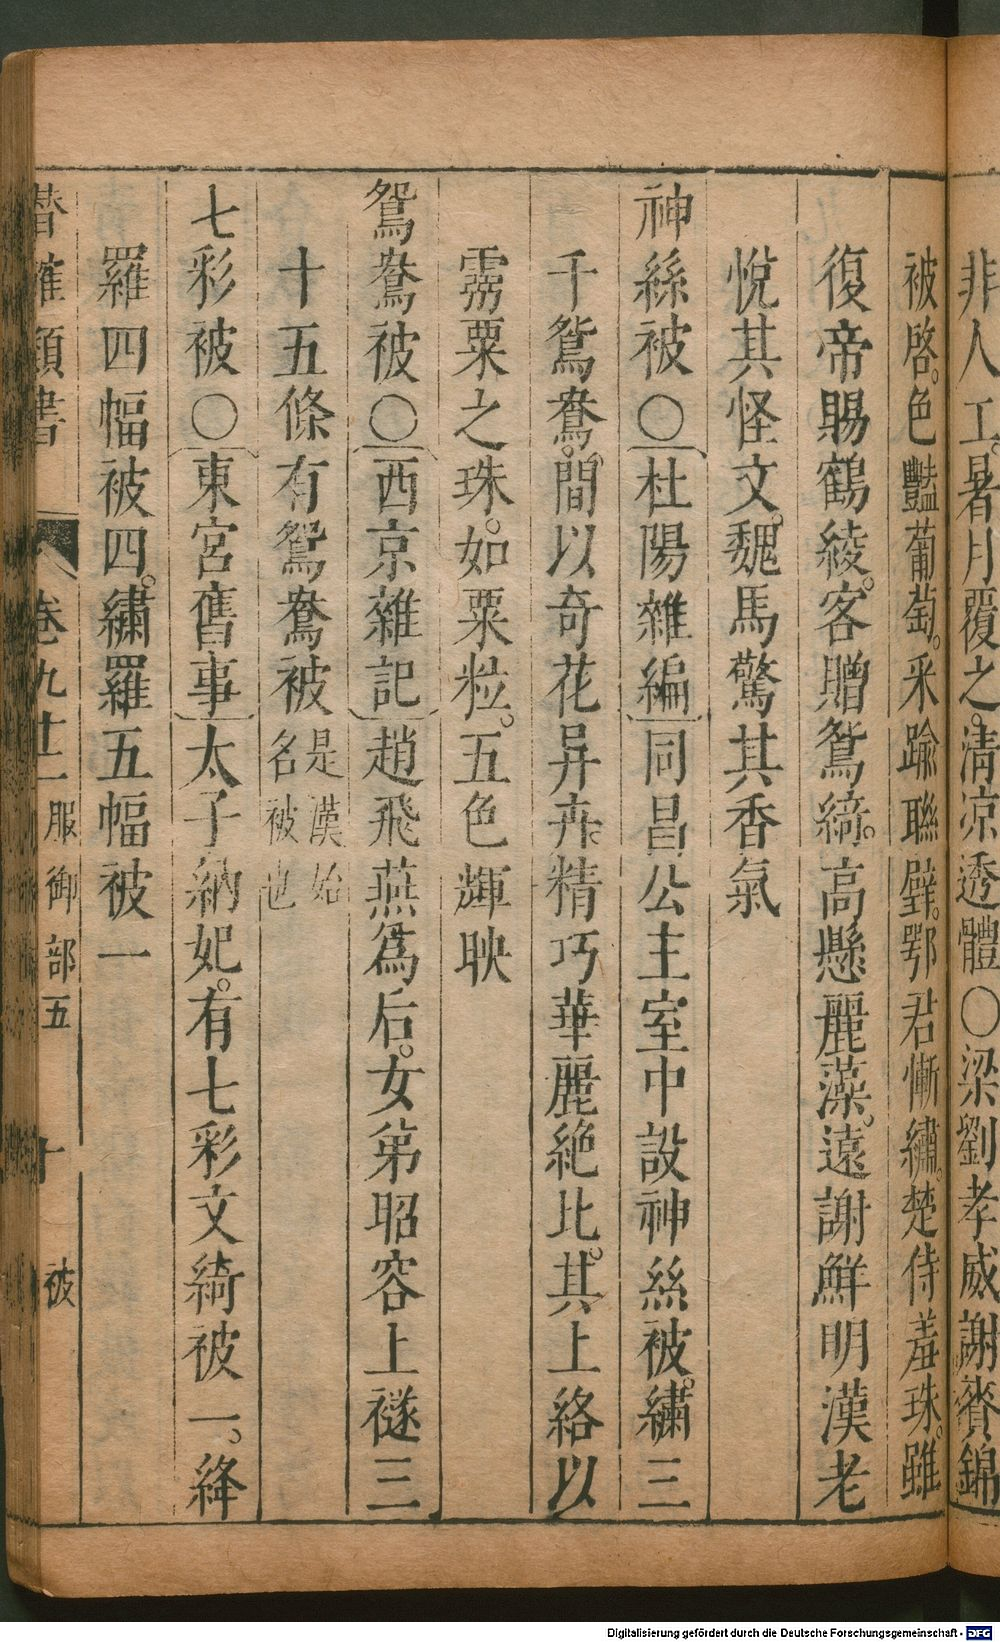 非人工。暑月覆之。清凉透體○梁劉孝威謝賚錦
被啓。色豔葡萄。采踰聯璧。鄂君慚繡。楚侍羞珠。雖
復帝賜鶴綾。客贈鴛綺。高懸麗藻。遠謝鮮明漢老
悅其怪文。魏馬驚其香氣
神絲被○杜陽雜編同昌公主室中設神絲被。繡三
千鴛鴦。間以奇花异卉。精巧華麗絶比。其上絡以
靈粟之珠。如粟粒。五色輝映
鴛鴦被○西京雜記趙飛燕爲后。女弟昭容上襚三
十五條有鴛鴦被是漢始名被也
七彩被○東宮舊事太子納妃。有七彩文綺被一。絳
羅四幅被四。繡羅五幅被一
類書 卷九十二 服御部五 十 被
Digitalisierung gefördert durch die Deutsche Forschungsgemeinschaft - DFG